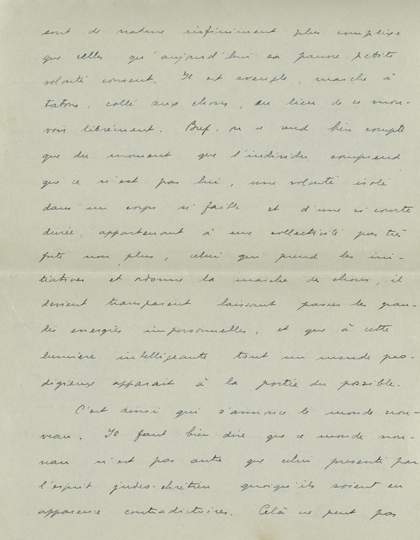 sont de nature infiniment plus complexe
que celles qu'aujourd'hui sa pauvre petite
volonté consent. Il est aveugle, marche à
tatons, collé aux choses, au lieu de se mou-
voir librement. Bref, on se rend bien compte
que du moment que l'individu comprend
que ce n'est pas lui, une volonté isolé
dans un corps si faible et d'une si courte
durée, appartenant à une collectivité pas très
forte non plus, celui que prend les ini-
tiatives et ordonne la marche des choses, il
devient transparent laissant passer les gran-
des energies impersonnelles, et que à cette
lumière intelligeante tout un monde pro-
digieux apparait à la portée du possible.
C'est ainsi qui s'annonce le monde nou-
veau. Il faut bien dire que ce monde nou-
veau n'est pas autre que celui presenté par
l'esprit judeo-chrétien quoiqu'ils soient en
apparence contradictoires. Celà ne peut pas